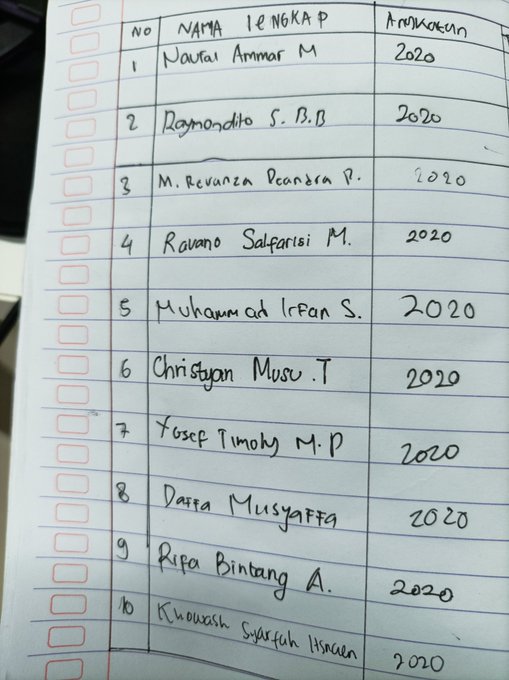 NO NAMA LENGKAP Angkatan
1 Naufal Ammar M 2020
2 Raymondito S. B.B 2020
3 M. Revanza Deandra P. 2020
4 Ravano Salfarisi M. 2020
5 Muhammad Irfan S. 2020
6 Christyan Musu .T 2020
7 Yosef Timoty M. P 2020
8 Daffa Musyaffa 2020
9 Rifa Bintang A. 2020
10 Khowash Syarfah 2020